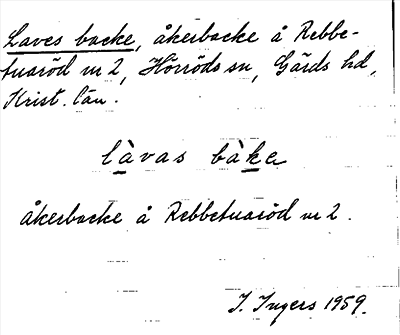 Laves backe, åkerbacke å Rebbe-
tuaröd nr 2, Hörröds sn, Gärds hd,
Krist. län.
làvas bàke
åkerbacke å Rebbetuaröd nr 2.
I. Ingers 1959.